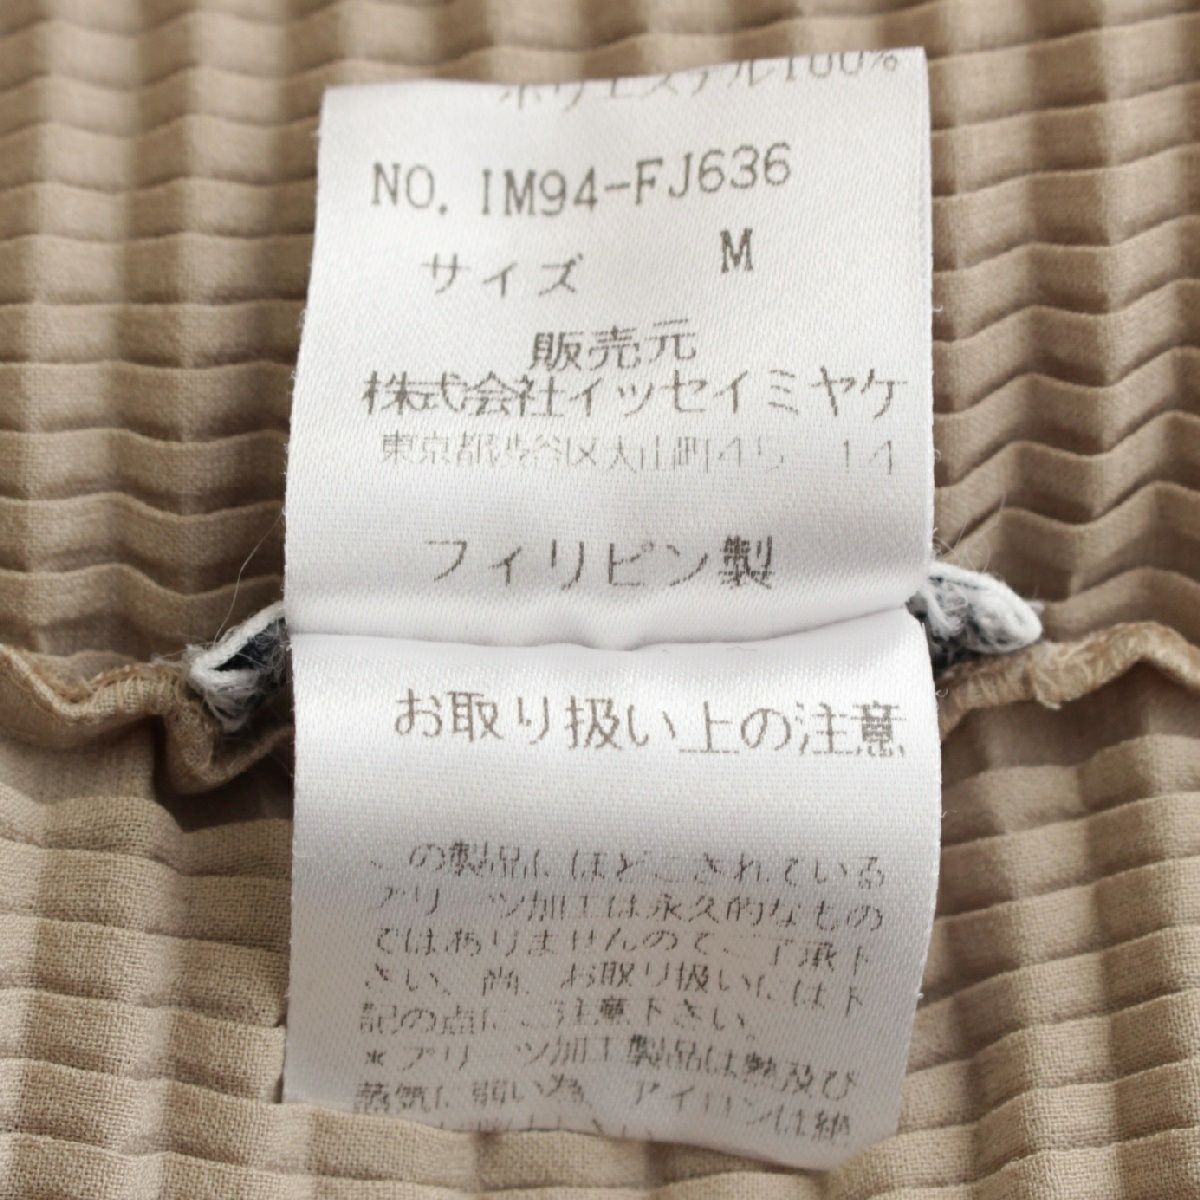 ポリエステル100%
NO. IM94-FJ636
サイズ M
販売元
株式会社イッセイミヤケ
東京都渋谷区大山町45-14
フィリピン製
お取り扱い上の注意
この製品にほどこされている
プリーツ加工は永久的なもの
ではありませんのでご了承下
さい。尚、お取り扱いには下
記の点にご注意下さい。
*プリーツ加工製品は熱及び
蒸気に弱い為、アイロンは絶